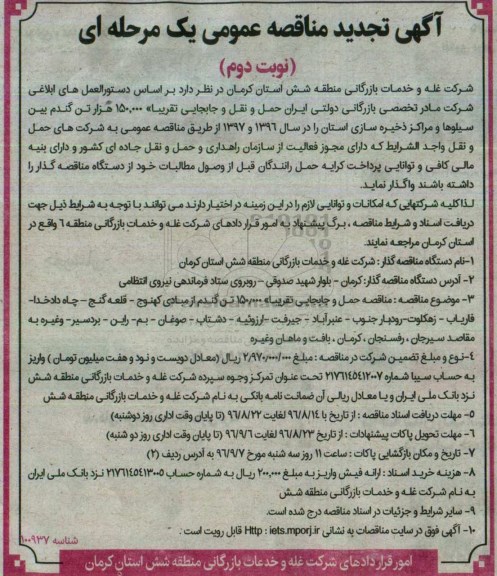 آگهی تجدید مناقصه عمومی یک مرحله ای
(نوبت دوم)
شرکت غله و خدمات بازرگانی منطقه شش استان کرمان در نظر دارد بر اساس دستورالعمل های ابلاغی
شرکت مادر تخصصی بازرگانی دولتی ایران حمل و نقل و جابجایی تقریبا» ۱۵۰,۰۰۰ هزار تن گندم بین
سیلوها و مراکز ذخیره سازی استان را در سال ۱۳۹۶ و ۱۳۹۷ از طریق مناقصه عمومی به شرکت های حمل
و نقل واجد الشرایط که دارای مجوز فعالیت از سازمان راهداری و حمل و نقل جاده ای کشور و دارای بنیه
مالی کافی و توانایی پرداخت کرایه حمل رانندگان قبل از وصول مطالبات خود از دستگاه مناقصه گذار را
داشته باشند واگذار نماید.
لذا کلیه شرکتهایی که امکانات و توانایی لازم را در این زمینه در اختیار دارند می توانند با توجه به شرایط ذیل جهت
دریافت اسناد و شرایط مناقصه ، برگ پیشنهاد به امور قرار دادهای شرکت غله و خدمات بازرگانی منطقه ۶ واقع در
استان کرمان مراجعه نمایند.
۱-نام دستگاه مناقصه گذار : شرکت غله و خدمات بازرگانی منطقه شش استان کرمان
۲- آدرس دستگاه مناقصه گذار: کرمان - بلوار شهید صدوقی - روبروی ستاد فرماندهی نیروی انتظامی
۳- موضوع مناقصه : مناقصه حمل و جابجایی تقریبا» ۱۵۰,۰۰۰ تن گندم از مبادی کهنوج - قلعه گنج - چاه دادخدا-
فاریاب - زهکلوت-رودبار جنوب - عنبرآباد - جیرفت - ارزوئیه - دشتاب - صوغان - بم- راین - بردسیر- وغیره به
مقاصد سیرجان ، رفسنجان ، کرمان ، بافت و ماهان وغیره
۴-نوع و مبلغ تضمین شرکت در مناقصه : مبلغ ۲/۹۷۰/۰۰۰/۰۰۰ ریال (معادل دویست و نود و هفت میلیون تومان ) واریز
به حساب سیبا شماره ۲۱۷۶۱۴۵۴۱۲۰۰۷ تحت عنوان تمرکز وجوه سپرده شرکت غله و خدمات بازرگانی منطقه شش
نزد بانک ملی ایران و یا معادل ریالی آن ضمانت نامه بانکی به نام شرکت غله و خدمات بازرگانی منطقه شش
۵- مهلت دریافت اسناد مناقصه : از تاریخ با ۹۶/۸/۱۴ لغایت ۹۶/۸/۲۲ (تا پایان وقت اداری روز دوشنبه)
۶- مهلت تحویل پاکات پیشنهادات : از تاریخ ۹۶/۸/۲۳ لغایت ۹۶/۹/۶ (تا پایان وقت اداری روز دو شنبه)
۷- تاریخ و مکان بازگشایی پاکات : ساعت ۱۱ روز سه شنبه مورخ ۹۶/۹/۷ به آدرس ردیف (۲)
۸- هزینه خرید اسناد : ارائه فیش واریز به مبلغ ۲۰۰,۰۰۰ ریال به شماره حساب ۲۱۷۶۱۴۵۴۱۳۰۰۵ نزد بانک ملی ایران
به نام شرکت غله و خدمات بازرگانی منطقه شش
۹- سایر شرایط و جزئیات در اسناد مناقصه درج شده است.
۱۰- آگهی فوق در سایت مناقصات به نشانی Http : iets.mporj.ir قابل رویت است .
شناسه ۱۰۰۹۳۷
امور قرار دادهای شرکت غله و خدمات بازرگانی منطقه شش استان کرمان